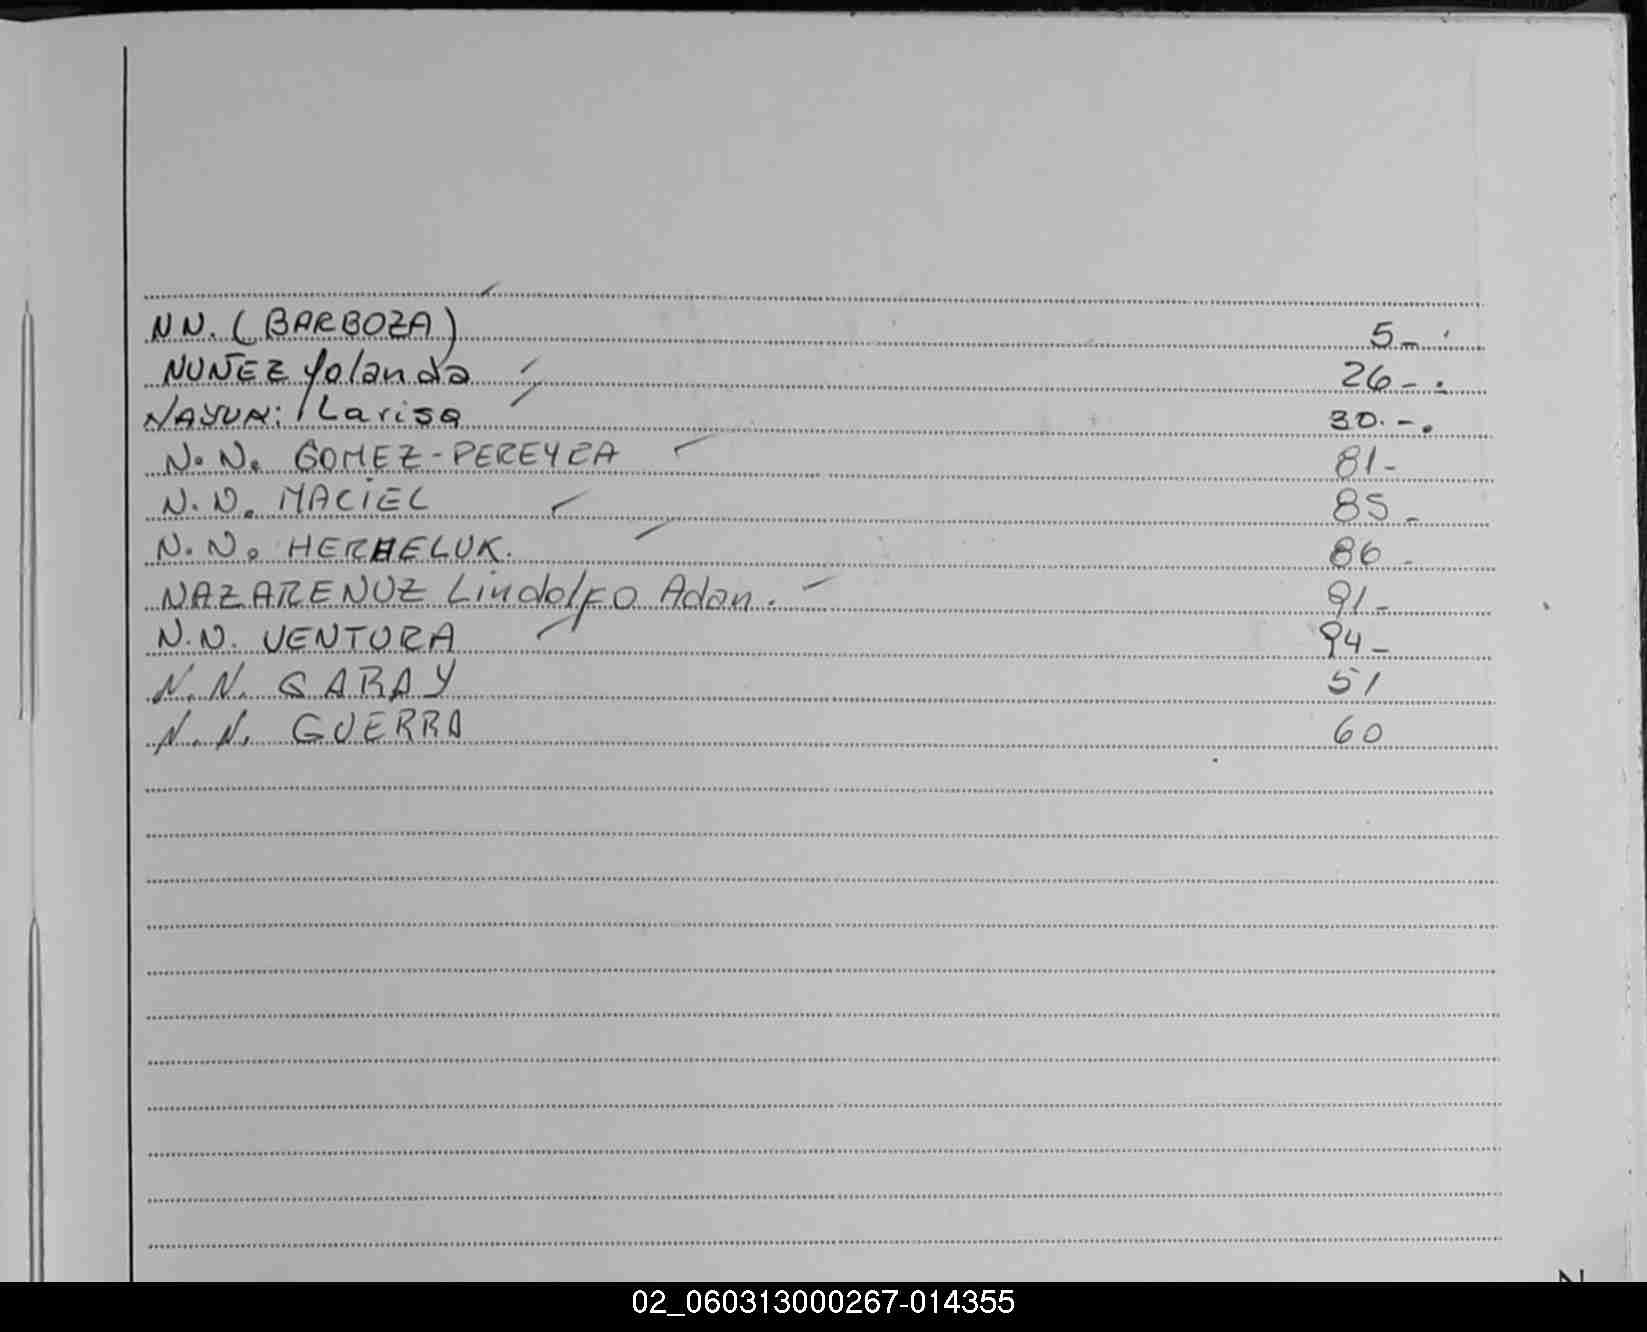 NN. (BARBOZA) 5-.
NUÑEZ Yolanda 26-.
NAYUN: Larisa 30.-.
N.N. GOMEZ-PEREYRA 81-
N.N. MACIEL 85-
N.N. HERHELUK. 86-
NAZARENUZ Lindolfo Adan. 91-
N.N. VENTURA 94-
N.N. GARAY 51
N.N. GUERRA 60
N
02_060313000267-014355